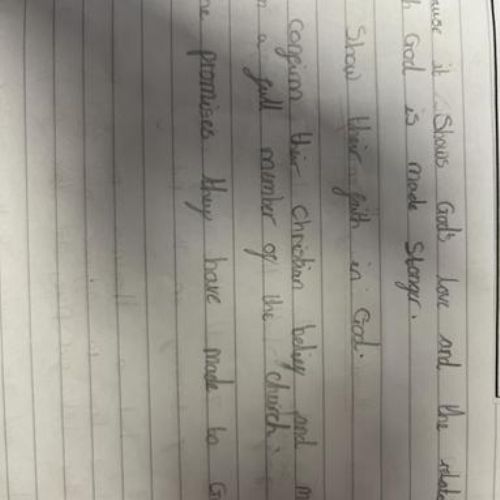 ause it Shows God's love and the relat
h God is made Stonger.
Show their faith in God.
confirm their Christian belief and m
m a full member of the church.
he promises they have made to G